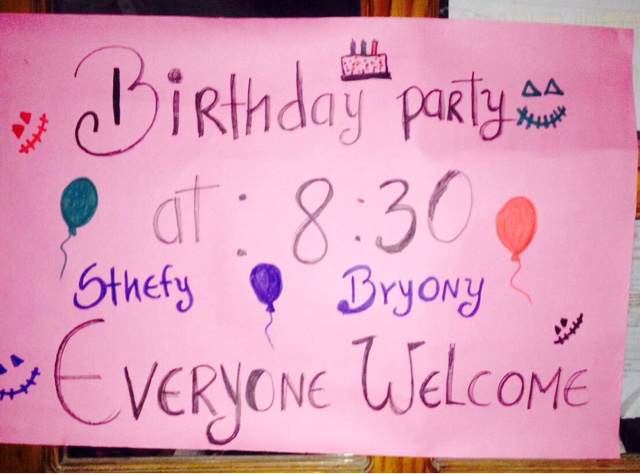 Birthday party
at: 8:30
Sthefy Bryony
Everyone Welcome